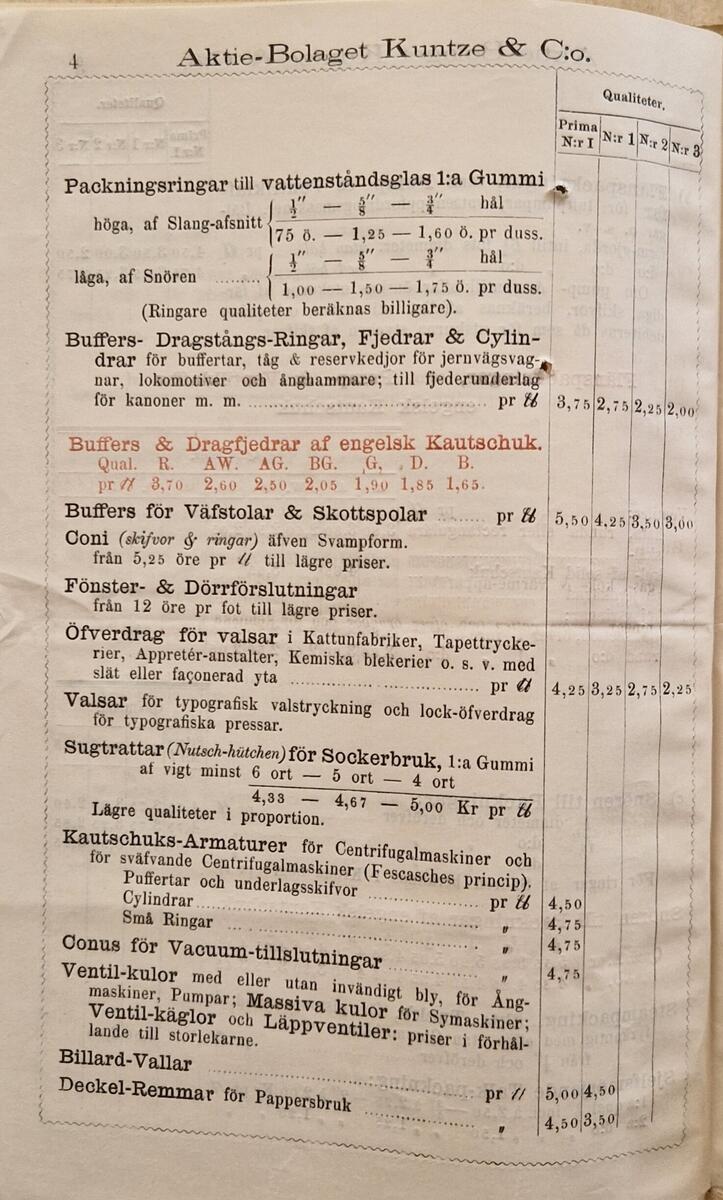 4 Aktie-Bolaget Kuntze & C:o.
Qualiteter.
Prima N:r I N:r 1 N:r 2 N:r 3
Packningsringar till vattenståndsglas 1:a Gummi
höga, af Slang-afsnitt ½" — ⅝" — ¾" hål
75 ö. — 1,25 — 1,60 ö. pr duss.
låga, af Snören ......... ½" — ⅝" — ¾" hål
1,00 — 1,50 — 1,75 ö. pr duss.
(Ringare qualiteter beräknas billigare).
Buffers- Dragstångs-Ringar, Fjedrar & Cylin-
drar för buffertar, tåg & reservkedjor för jernvägsvag-
nar, lokomotiver och ånghammare; till fjederunderlag
för kanoner m. m. ........ pr ℔ 3,75 2,75 2,25 2,00
Buffers & Dragfjedrar af engelsk Kautschuk.
Qual. R. AW. AG. BG. G. D. B.
pr ℔ 3,70 2,60 2,50 2,05 1,90 1,85 1,65.
Buffers för Väfstolar & Skottspolar ........ pr ℔ 5,50 4,25 3,50 3,00
Coni (skifvor & ringar) äfven Svampform.
från 5,25 öre pr ℔ till lägre priser.
Fönster- & Dörrförslutningar
från 12 öre pr fot till lägre priser.
Öfverdrag för valsar i Kattunfabriker, Tapettrycke-
rier, Appretér-anstalter, Kemiska blekerier o. s. v. med
slät eller façonerad yta ........ pr ℔ 4,25 3,25 2,75 2,25
Valsar för typografisk valstryckning och lock-öfverdrag
för typografiska pressar.
Sugtrattar (Nutsch-hütchen) för Sockerbruk, 1:a Gummi
af vigt minst 6 ort — 5 ort — 4 ort
4,33 — 4,67 — 5,00 Kr pr ℔
Lägre qualiteter i proportion.
Kautschuks-Armaturer för Centrifugalmaskiner och
för sväfvande Centrifugalmaskiner (Fescasches princip).
Puffertar och underlagsskifvor ........ pr ℔ 4,50
Cylindrar ........ „ 4,75
Små Ringar ........ „ 4,75
Conus för Vacuum-tillslutningar ........ „ 4,75
Ventil-kulor med eller utan invändigt bly, för Ång-
maskiner, Pumpar; Massiva kulor för Symaskiner;
Ventil-käglor och Läppventiler: priser i förhål-
lande till storlekarne.
Billard-Vallar ........ pr ℔ 5,00 4,50
Deckel-Remmar för Pappersbruk ........ „ 4,50 3,50